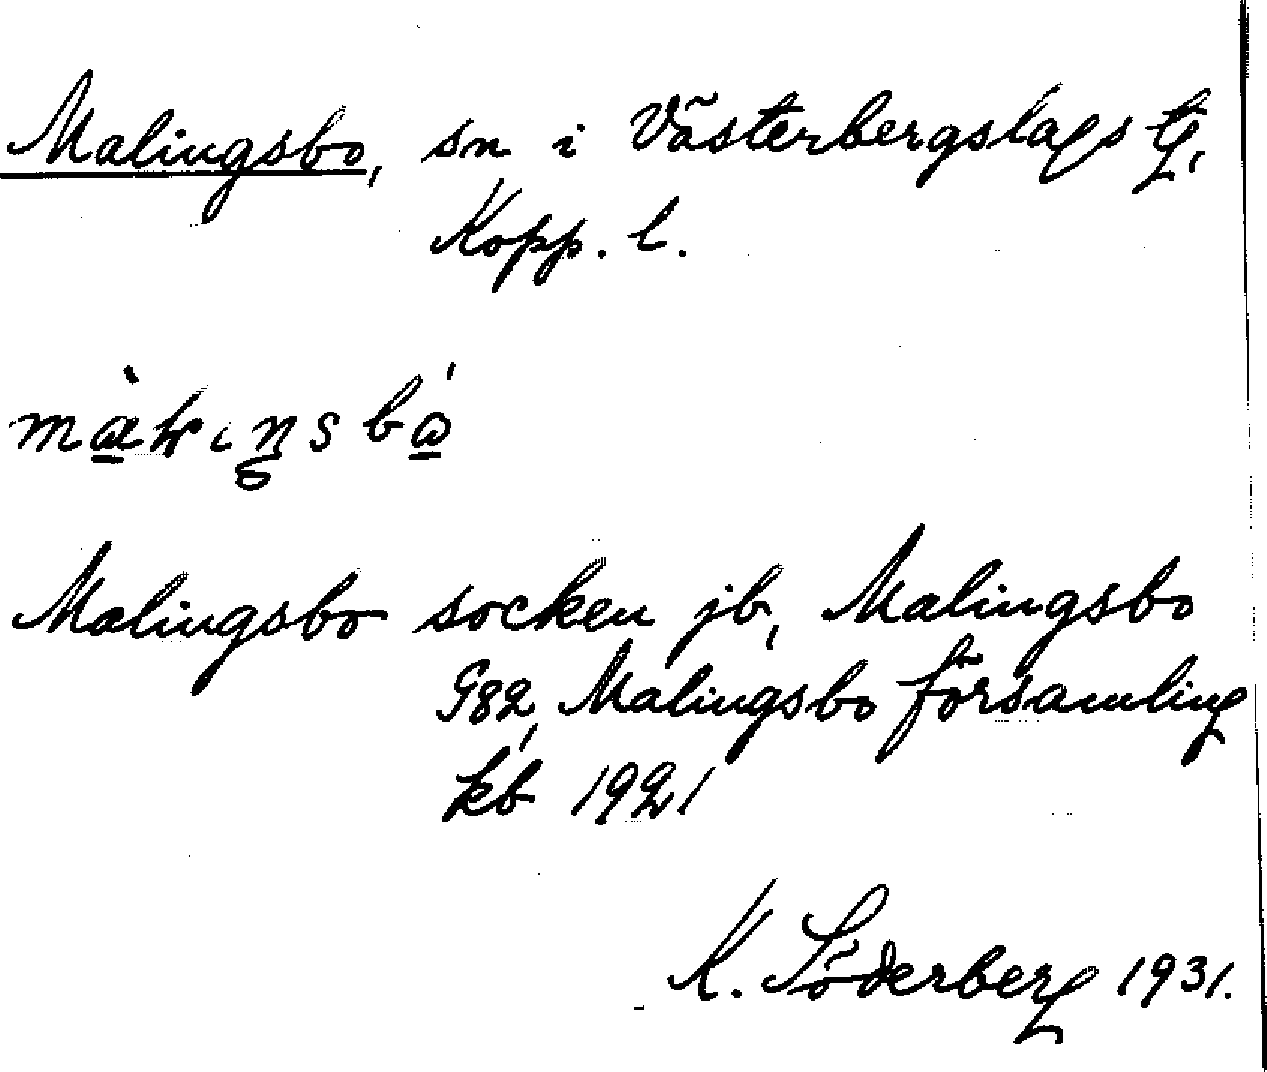 Malingsbo, sn i Västerbergslags tg,
Kopp. l.
Malingsbo socken jb, Malingsbo
G82, Malingsbo församling
kb 1921
K. Söderberg 1931.